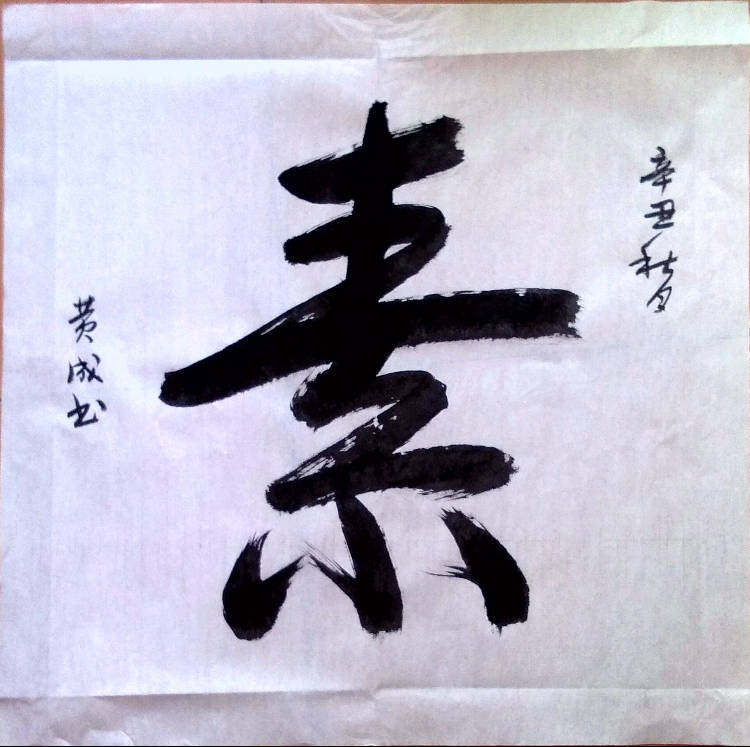 辛丑秋月
素
黄成书